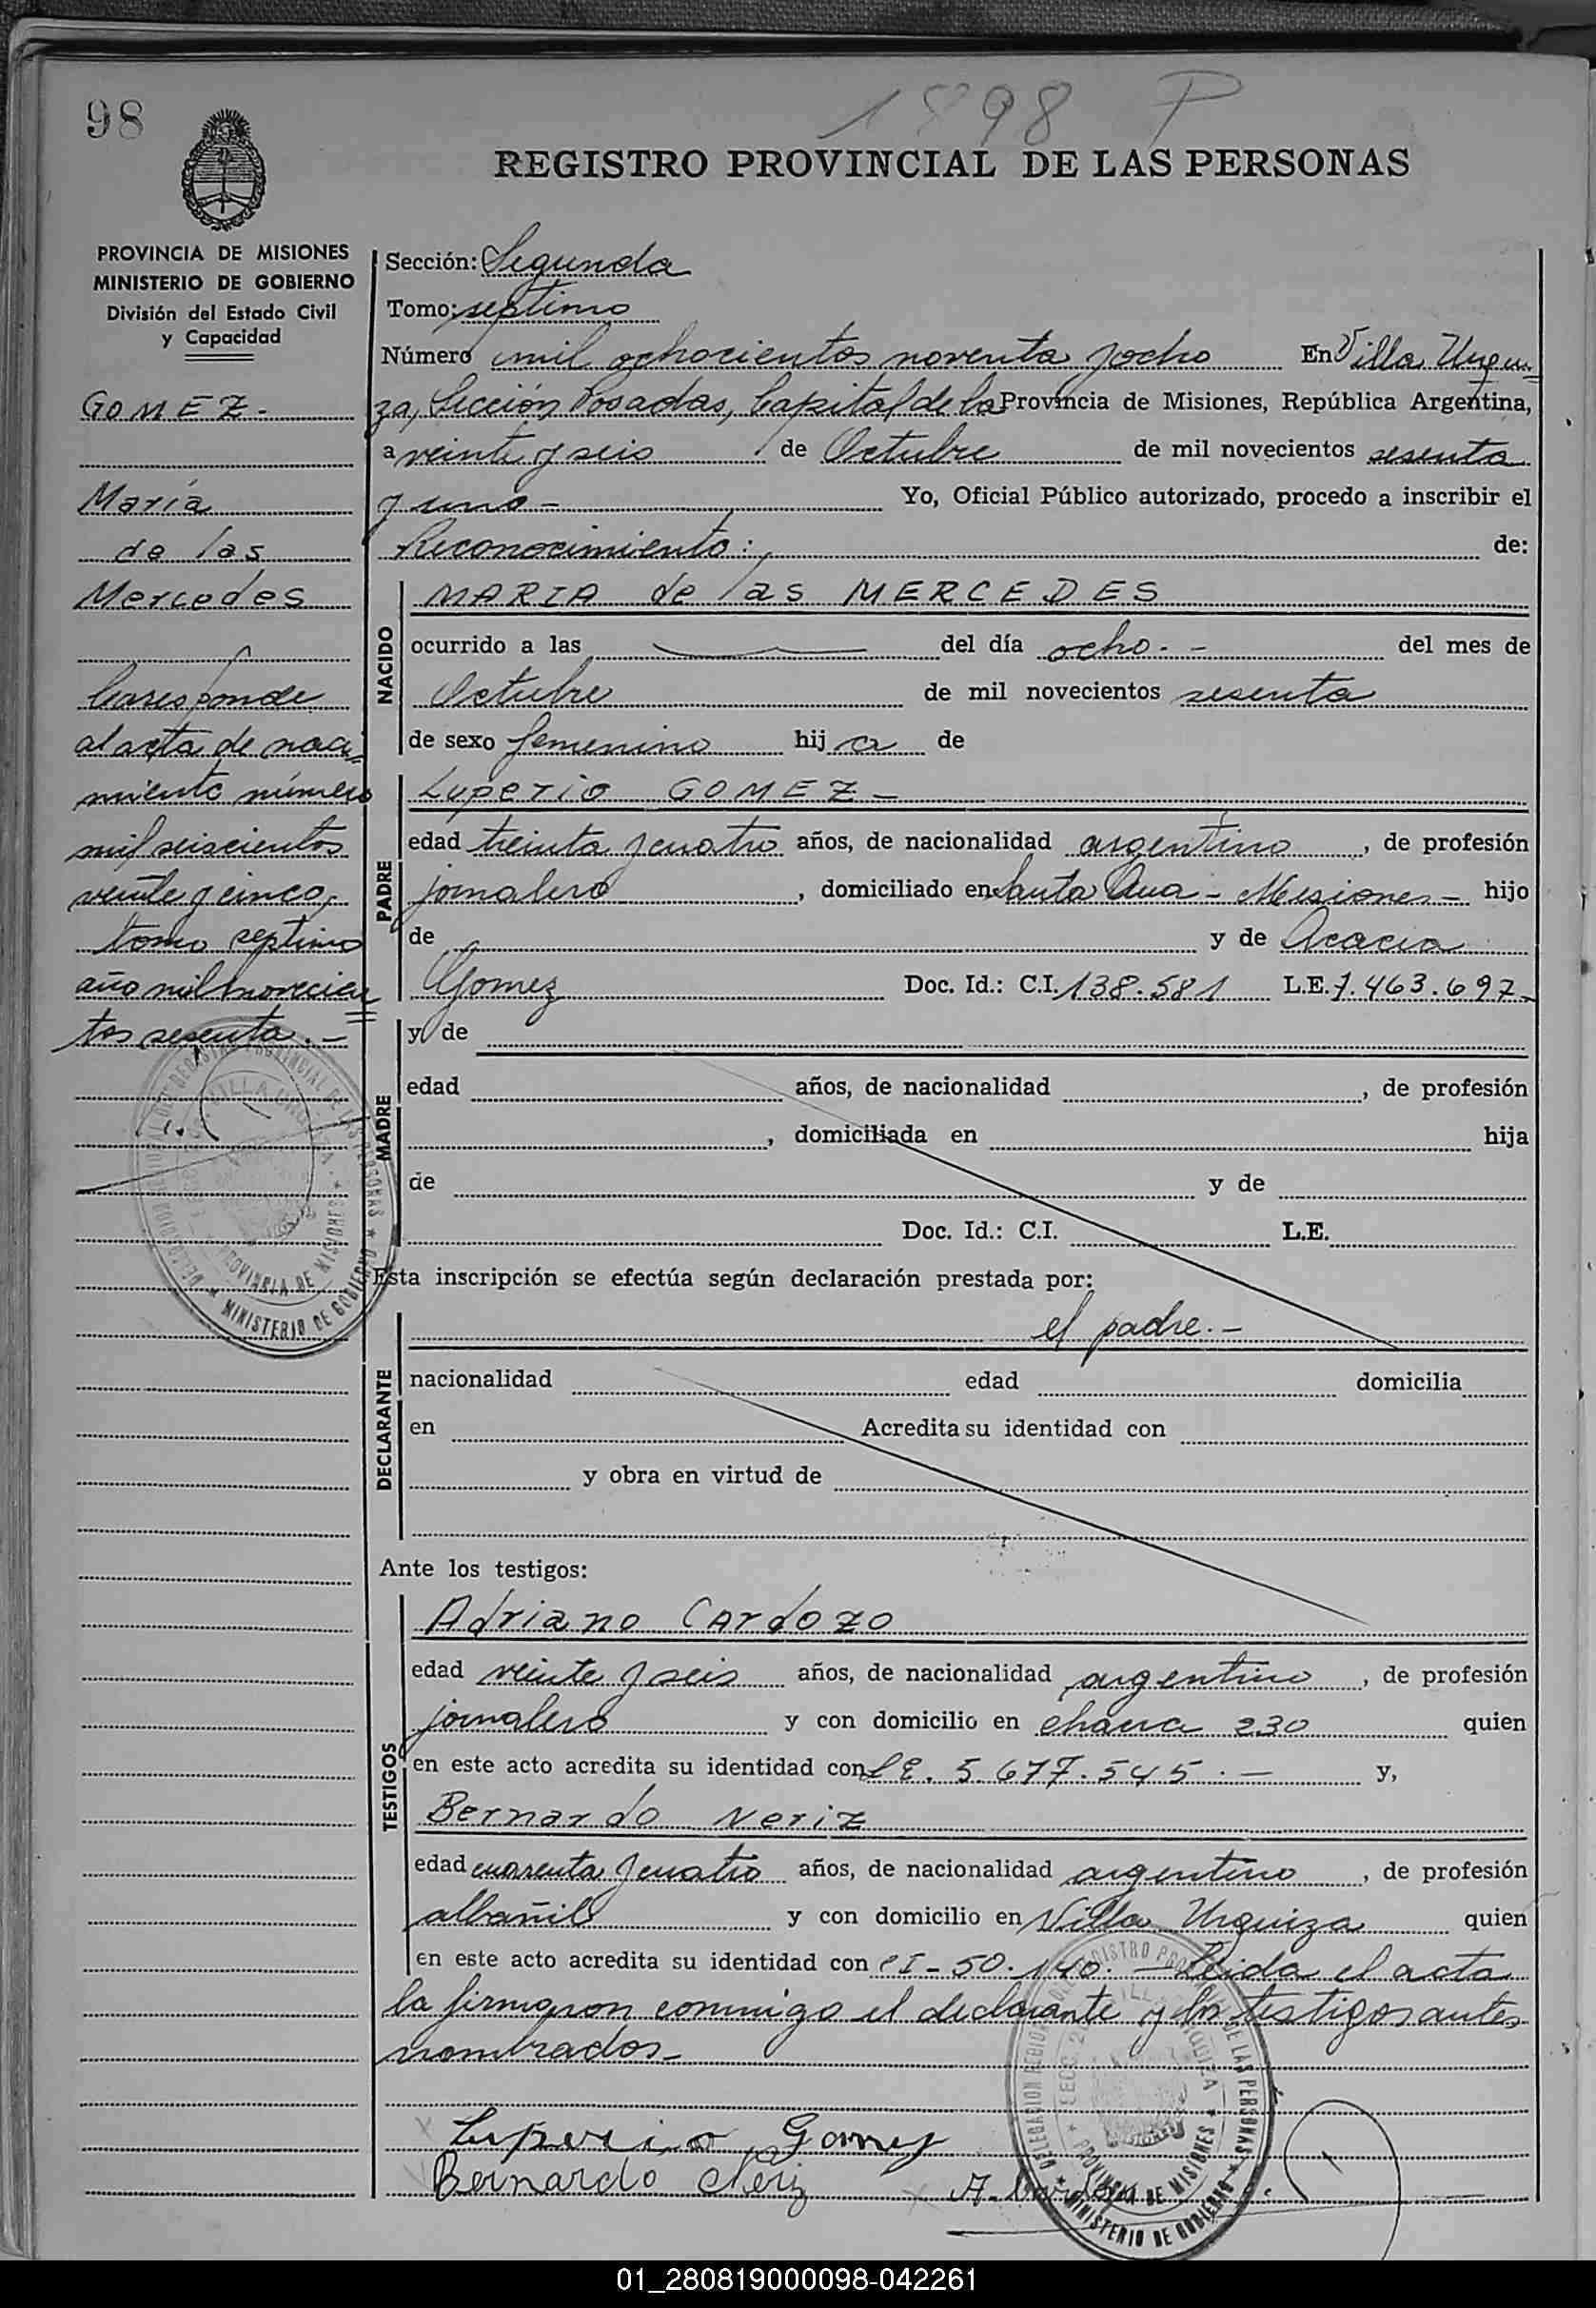 98
1898 P
REGISTRO PROVINCIAL DE LAS PERSONAS
PROVINCIA DE MISIONES
MINISTERIO DE GOBIERNO
División del Estado Civil
y Capacidad
GOMEZ.-
María
de las
Mercedes
Corresponde
al acta de naci-
miento número
mil seiscientos
veinte y cinco,
tomo septimo
año mil novecien
tos sesenta.-
Sección: Segunda
Tomo: septimo
Número mil ochocientos noventa y ocho En Villa Urqui
za, Sección Posadas, Capital de la Provincia de Misiones, República Argentina,
a veinte y seis de Octubre de mil novecientos sesenta
y uno.- Yo, Oficial Público autorizado, procedo a inscribir el
Reconocimiento: de:
NACIDO
MARIA de las MERCEDES
ocurrido a las del día ocho.- del mes de
Octubre de mil novecientos sesenta
de sexo femenino hij a de
PADRE
Luperio GOMEZ-
edad treinta y cuatro años, de nacionalidad argentino, de profesión
jornalero, domiciliado en Santa Ana - Misiones - hijo
de y de Acacia
Gomez Doc. Id.: C.I. 138.581 L.E. 7.463.697-
MADRE
y de
edad años, de nacionalidad , de profesión
, domiciliada en hija
de y de
Doc. Id.: C.I. L.E.
Esta inscripción se efectúa según declaración prestada por:
el padre.-
DECLARANTE
nacionalidad edad domicilia
en Acredita su identidad con
y obra en virtud de
Ante los testigos:
TESTIGOS
Adriano Cardozo
edad veinte y seis años, de nacionalidad argentino, de profesión
jornalero y con domicilio en chacra 230 quien
en este acto acredita su identidad con L E. 5.677.545.- y,
Bernardo Neriz
edad cuarenta y cuatro años, de nacionalidad argentino, de profesión
albañil y con domicilio en Villa Urquiza quien
en este acto acredita su identidad con C I - 50.140. - Leida el acta
la firmaron conmigo el declarante y los testigos antes
nombrados-
Luperio Gomez
Bernardo Neriz A. Cardozo
DELEGACION REGIONAL DEL REGISTRO PROVINCIAL DE LAS PERSONAS
VILLA URQUIZA
PROVINCIA DE MISIONES
MINISTERIO DE GOBIERNO
01_280819000098-042261